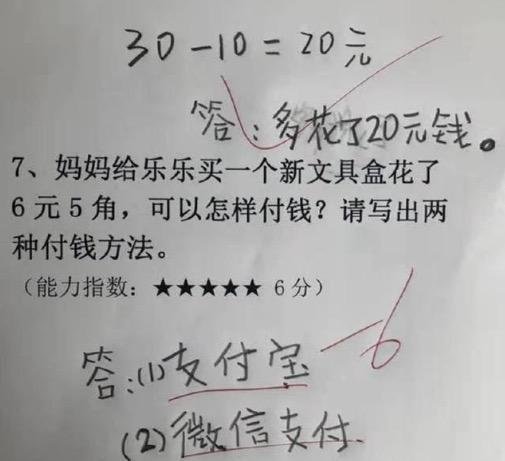 30-10=20元
答:多花了20元钱。
7、妈妈给乐乐买一个新文具盒花了
6元5角，可以怎样付钱？请写出两
种付钱方法。
（能力指数：★★★★★ 6分）
-6
答:(1)支付宝
(2)微信支付.